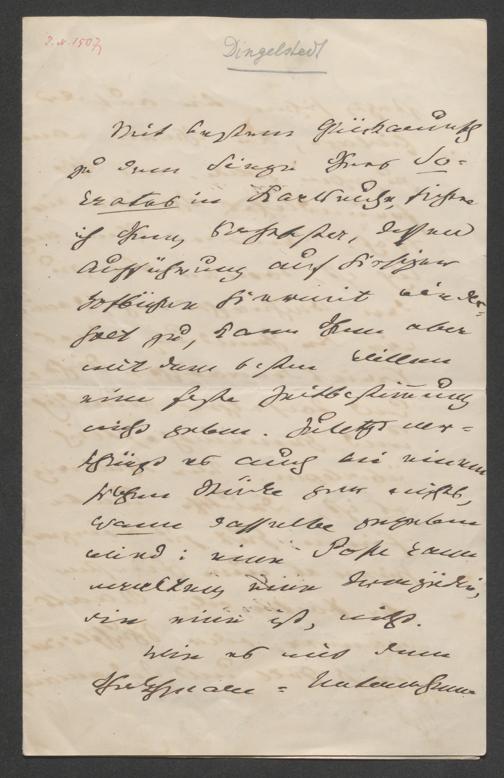 I. N. 1507
Dingelstedt
Mit bestem Glückwunsch
zu dem Siege Ihres So-
crates in Karlsruhe sichere
ich Ihnen, dessen
Aufführung auf hiesiger
Hofbühne hiermit wieder-
holt zu, kann Ihnen aber
mit dem besten Willen
eine feste Zeitbestimmung
nicht geben. Zuletzt ver-
schlägt es auch bei einem
solchen Stücke gar nichts,
wann dasselbe gegeben
wird: eine Posse kann
veralten, eine Tragödie,
die eine ist, nicht.
Wie es mit dem